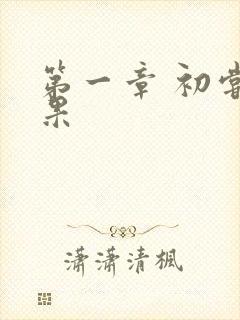 第一章 初尝
果
潇潇清楓